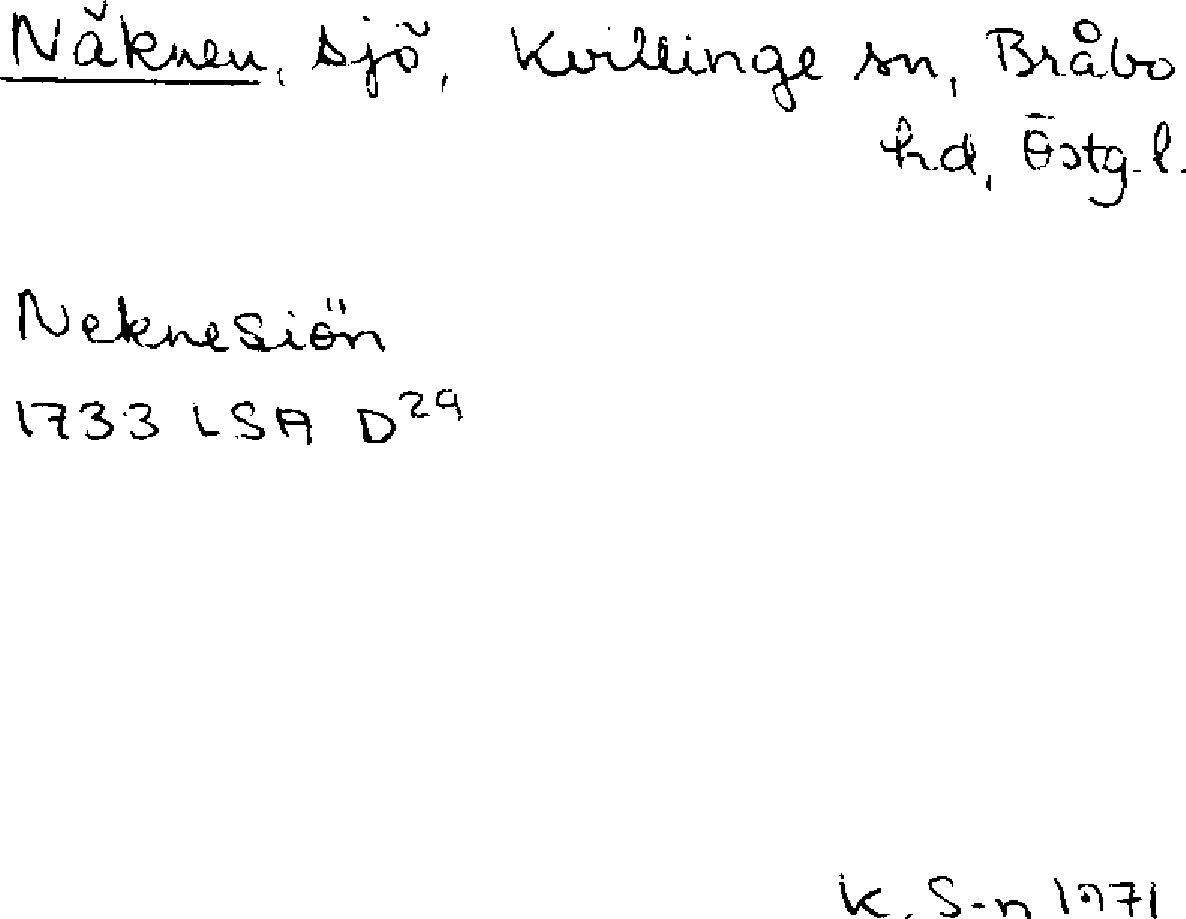 Näknen, sjö, Kvillinge sn, Bråbo
hd, Östg.l.
Neknesiön
1733 LSA D²⁹
K. S-n 1971